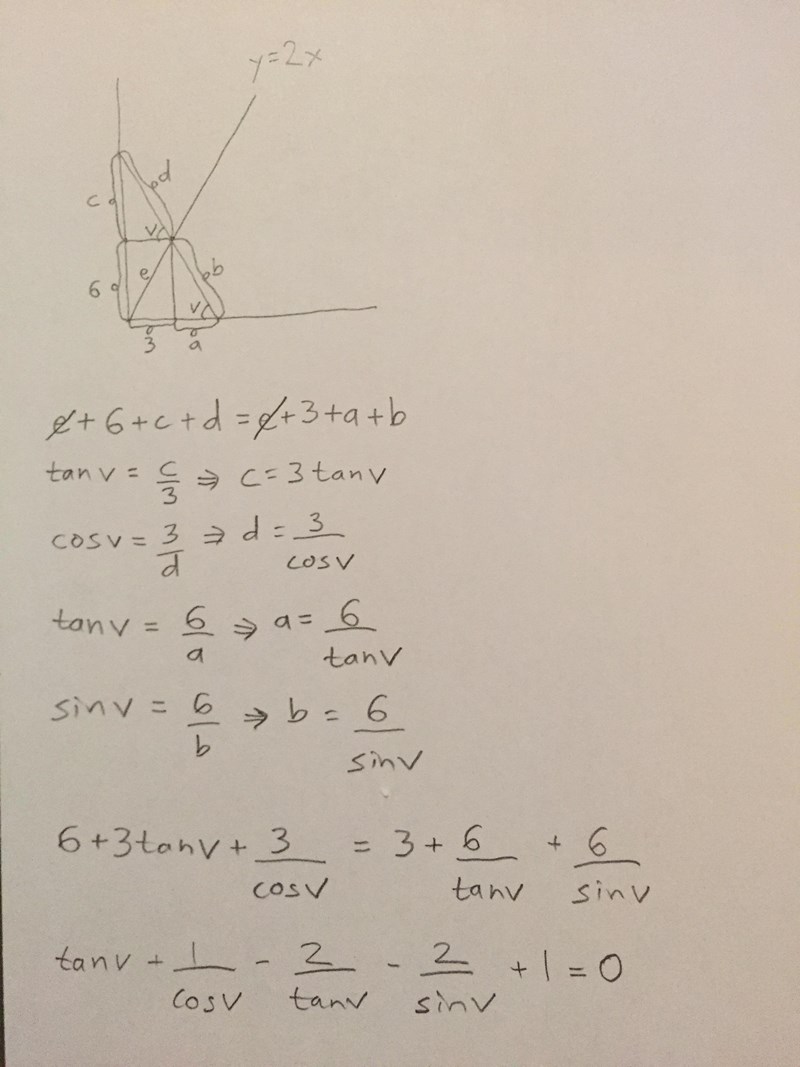 y=2x
d
c
v
e
b
6
v
3 a
e+6+c+d=e+3+a+b
tan v = c/3 ⇒ c=3 tan v
cos v = 3/d ⇒ d = 3/cos v
tan v = 6/a ⇒ a = 6/tan v
sin v = 6/b ⇒ b = 6/sin v
6+3tan v + 3/cos v = 3 + 6/tan v + 6/sin v
tan v + 1/cos v - 2/tan v - 2/sin v + 1 = 0